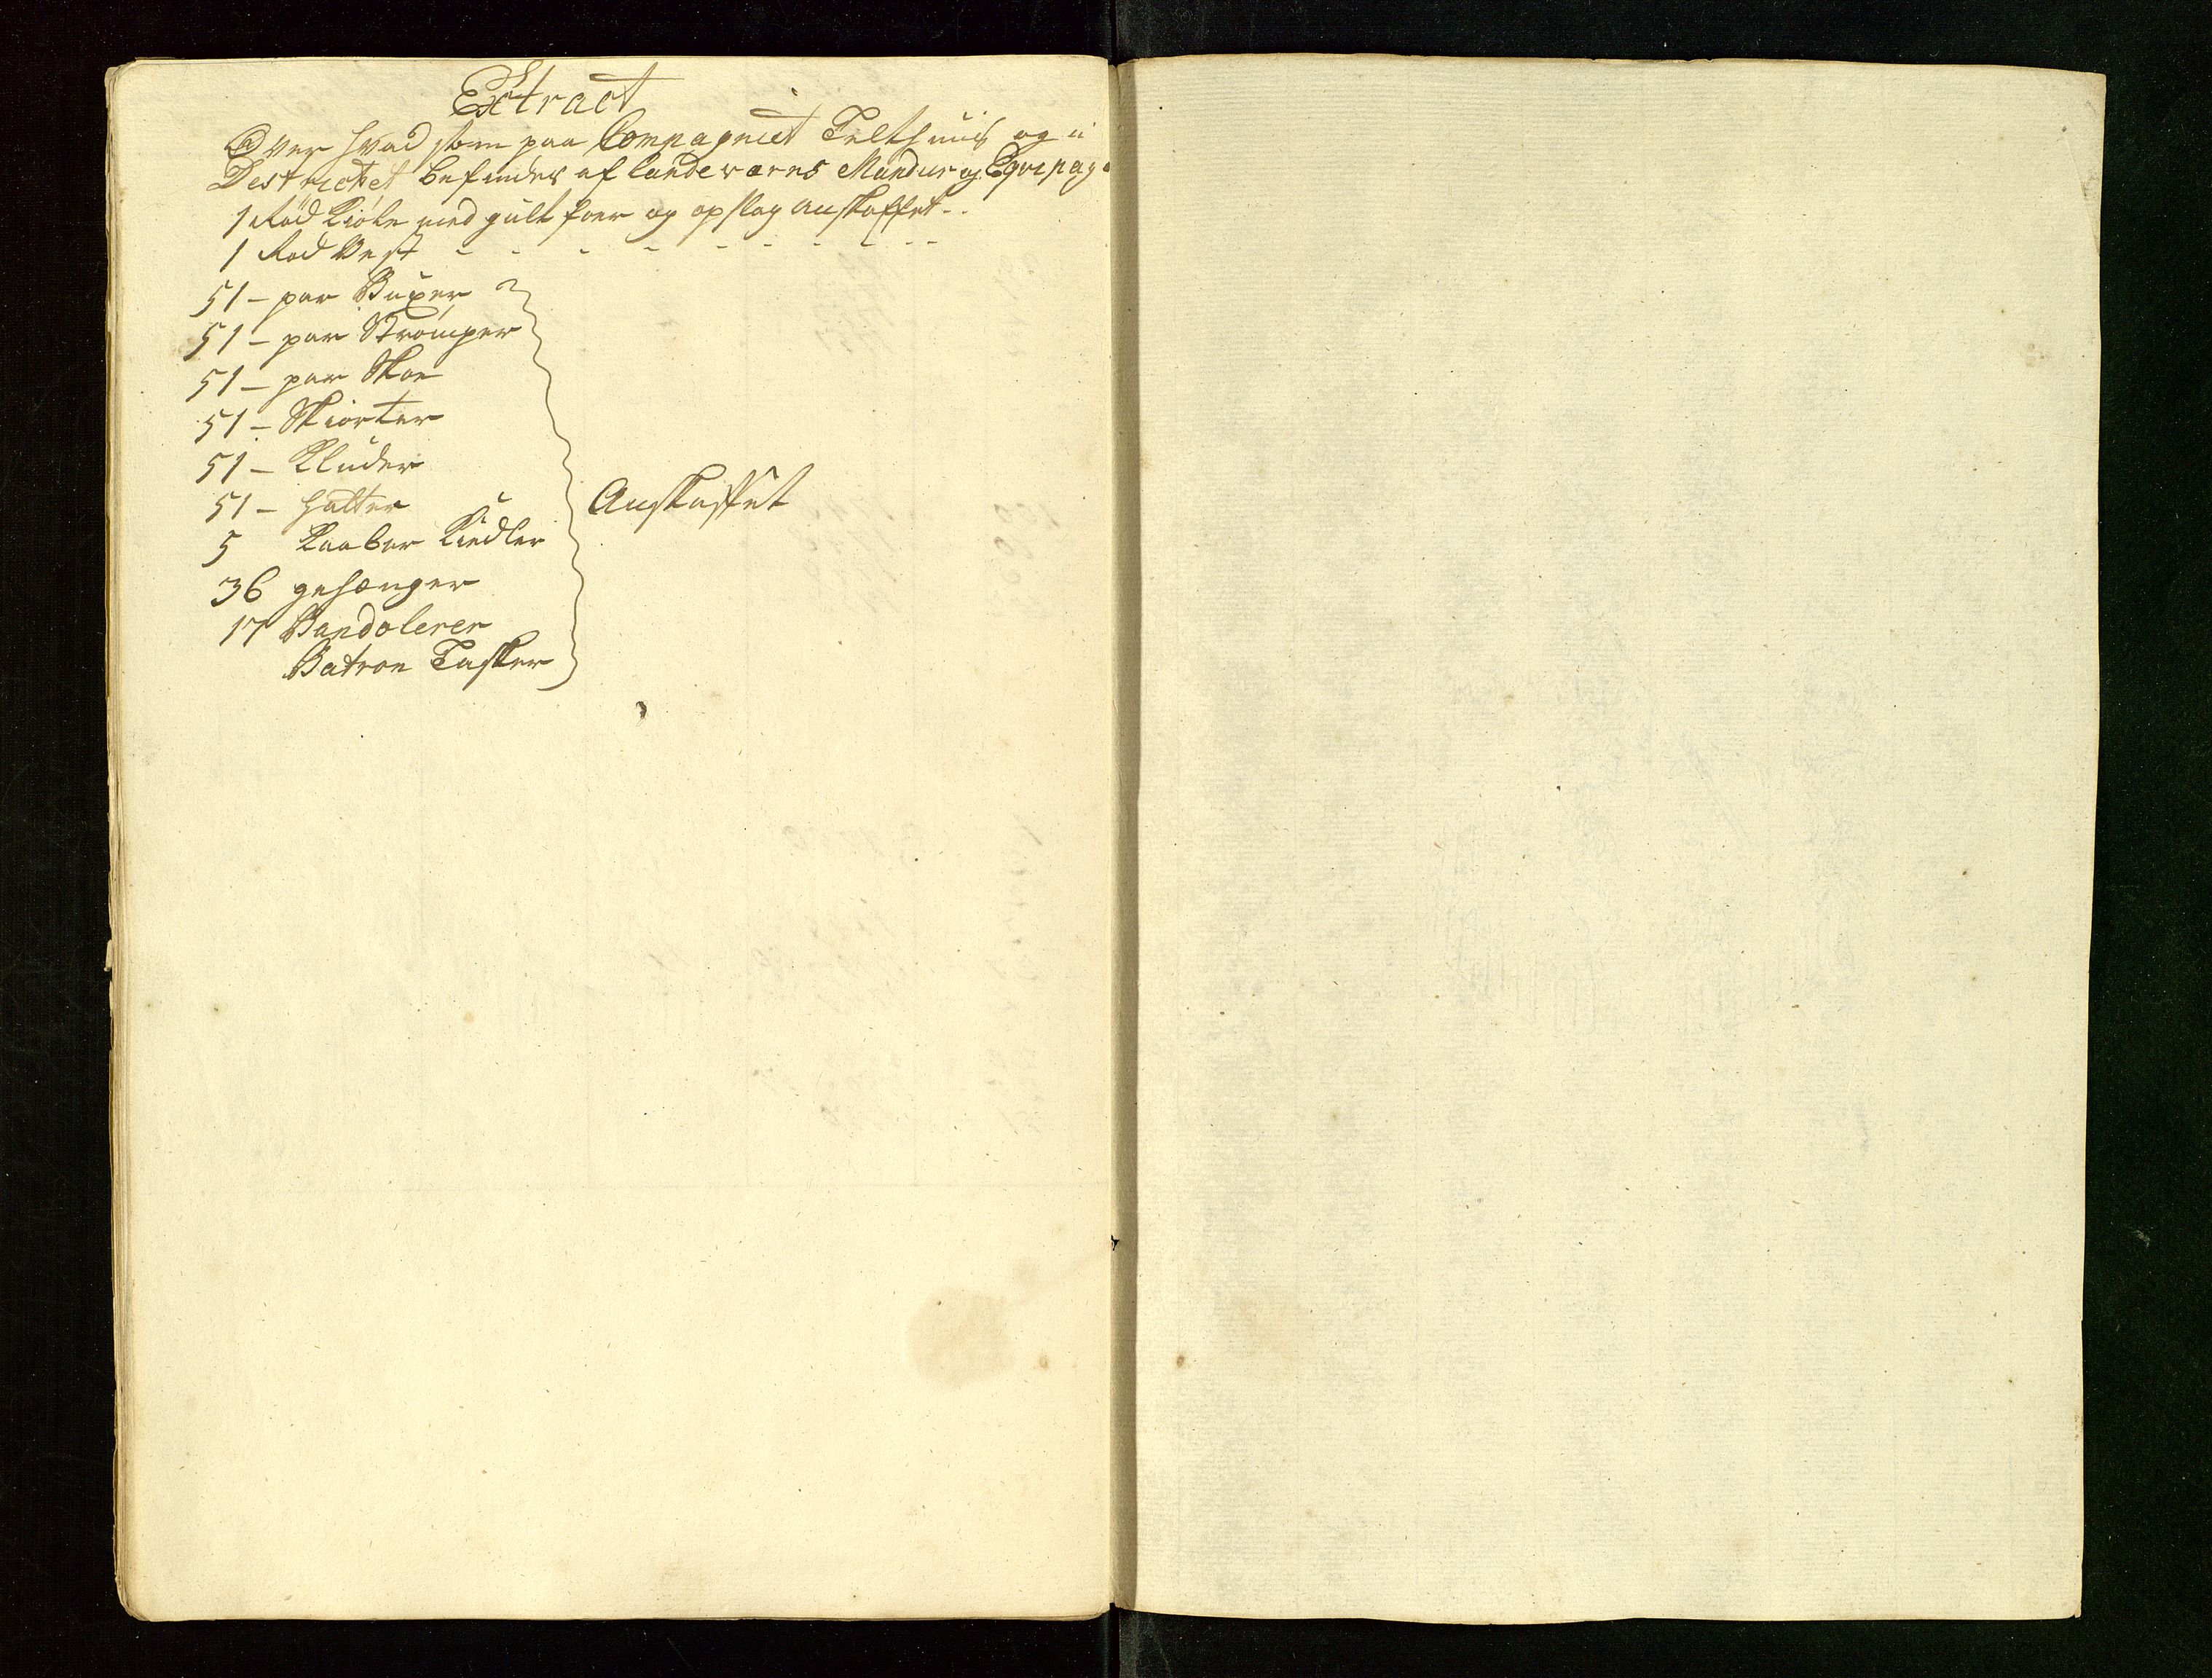 Extract
Over hvad som paa Compagniet Telthuus og i
Destrictet befindes af landeværns Mundur og Eqvipage
1 Rød Kiole med gült foer og opslag anskaffet - -
1 Rød Vest - - - - - - - - - -
51 - par Buxer
51 - par Strømper
51 - par Skoe
51 - Skiorter
51 - Klüder
51 - Hatter
5 Kaaber Kiedler
36 gehænger
17 Bandolerer
Batron Tasker
Anskaffet